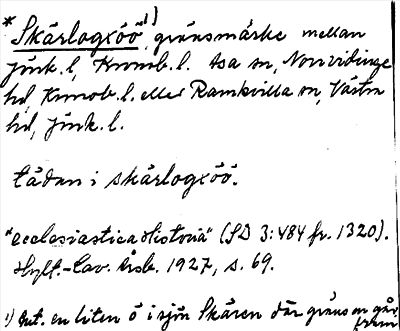 * Skärlogxöö¹⁾, gränsmärke mellan
Jönk. l., Kronob. l. Asa sn, Norrvidinge
hd, Kronob. l. eller Ramkvilla sn, Västra
hd, Jönk. l.
tådan i skärlogxöö.
"ecclesiastica Historia" (SD 3:484 fr. 1320).
Hylt.-Cav. Årsb. 1927, s. 69.
1) Ant. en liten ö i sjön Skären där gränsen går
fram